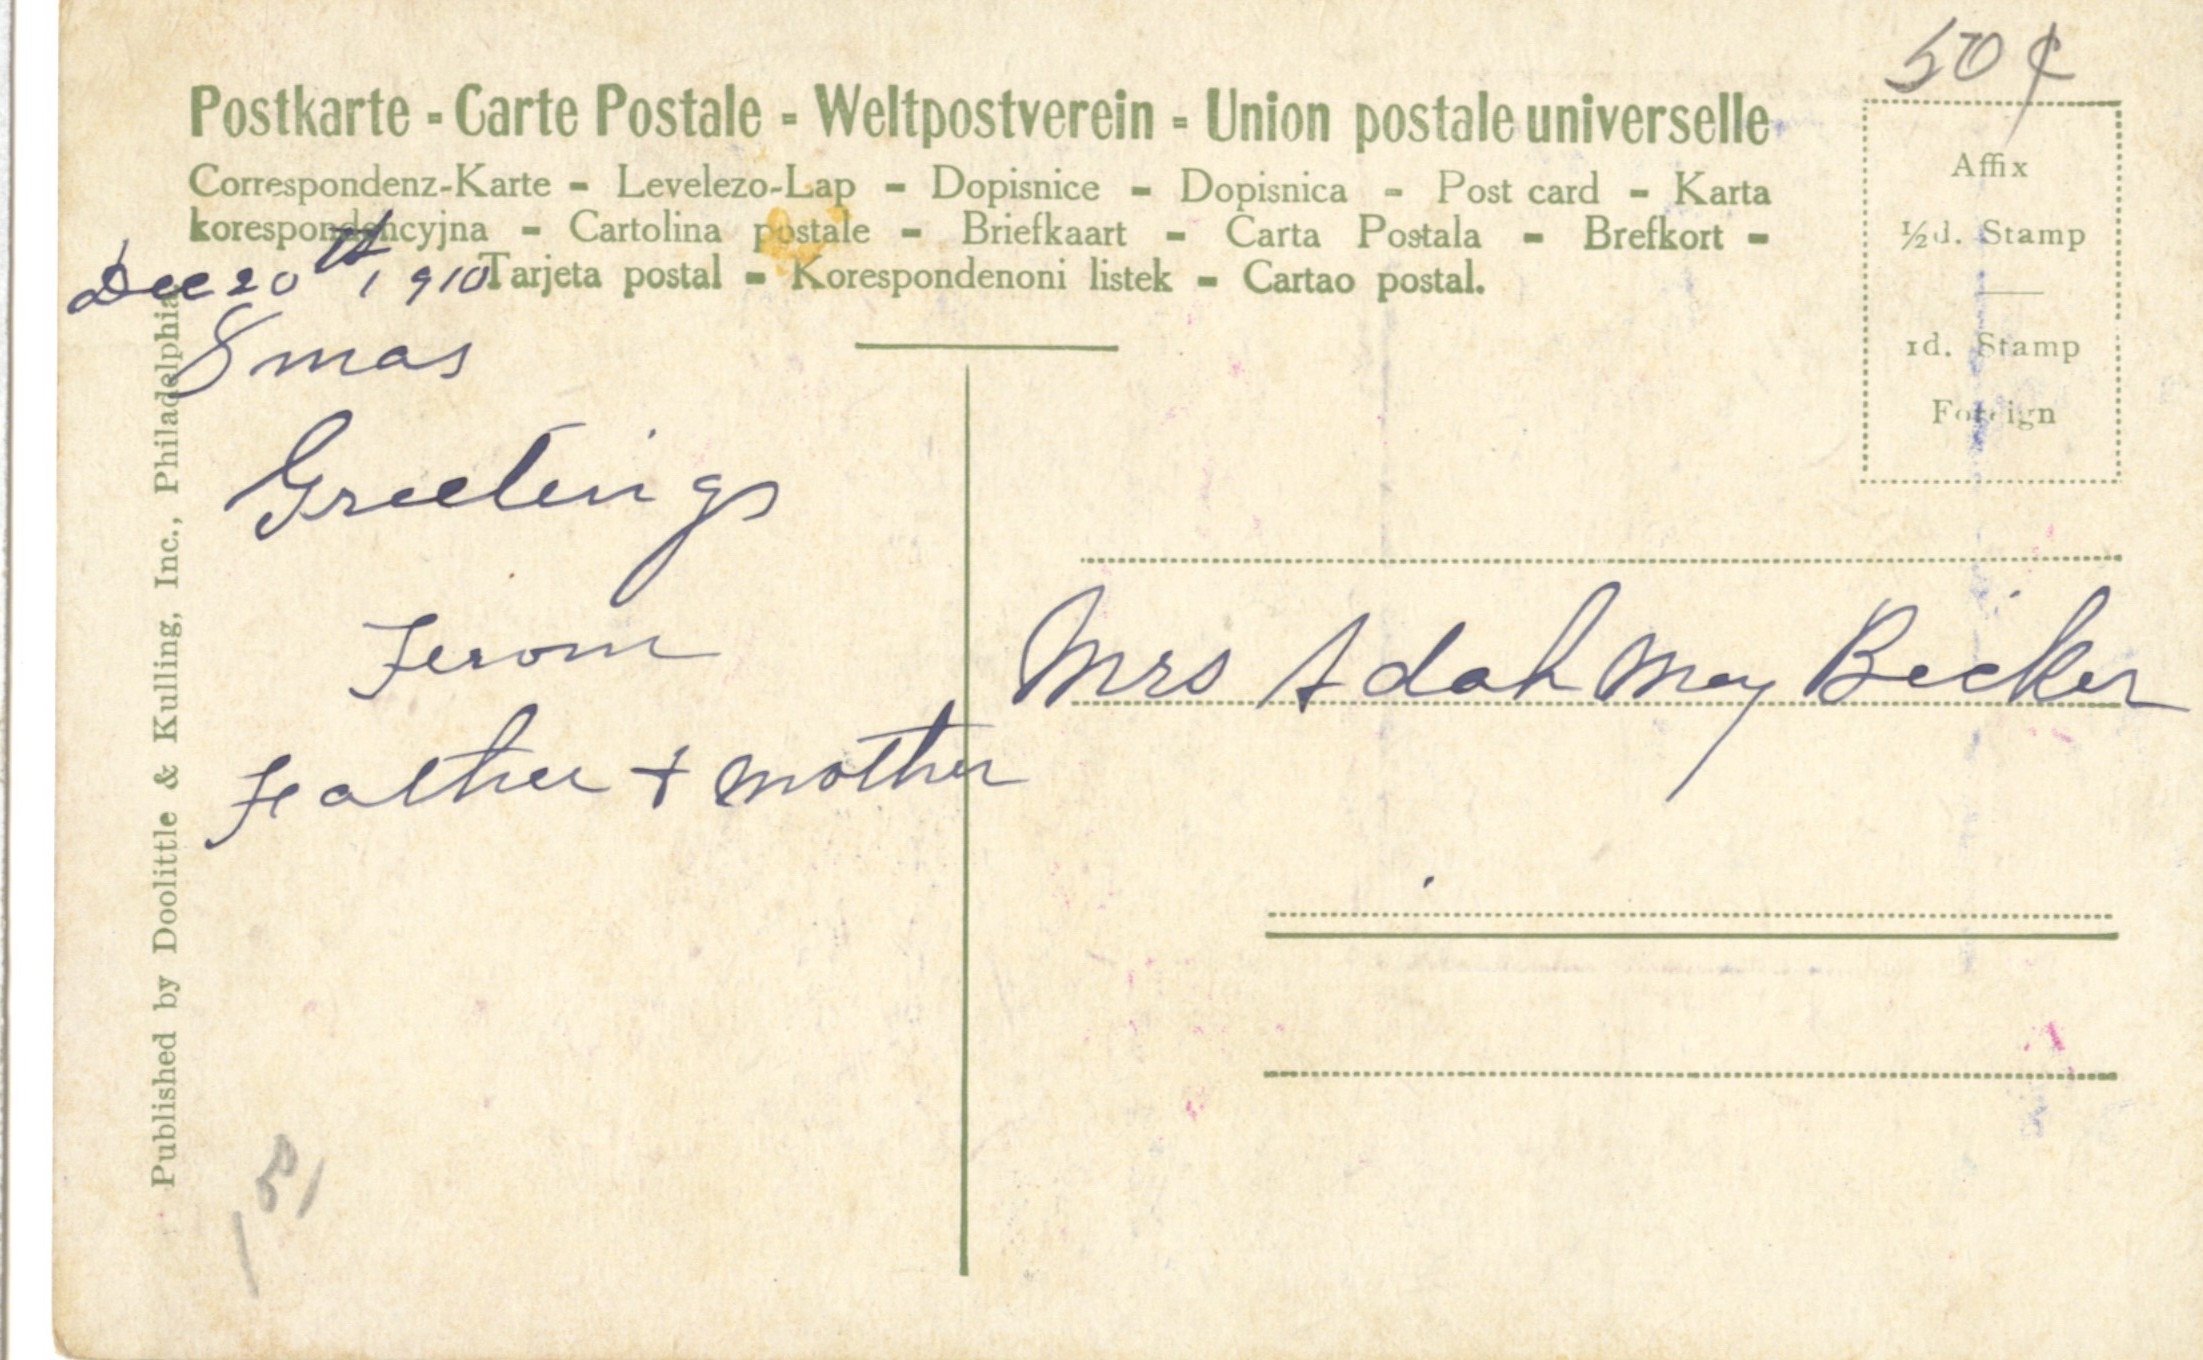 50¢
Postkarte - Carte Postale - Weltpostverein - Union postale universelle
Correspondenz-Karte - Levelezo-Lap - Dopisnice - Dopisnica - Post card - Karta
korespondencyjna - Cartolina postale - Briefkaart - Carta Postala - Brefkort -
Tarjeta postal - Korespondenoni listek - Cartao postal.
Affix
½d. Stamp
1d. Stamp
Foreign
Dec 20th 1910
Xmas
Greetings
From
Father + Mother
Mrs Adah May Becker
Published by Doolittle & Kulling, Inc., Philadelphia